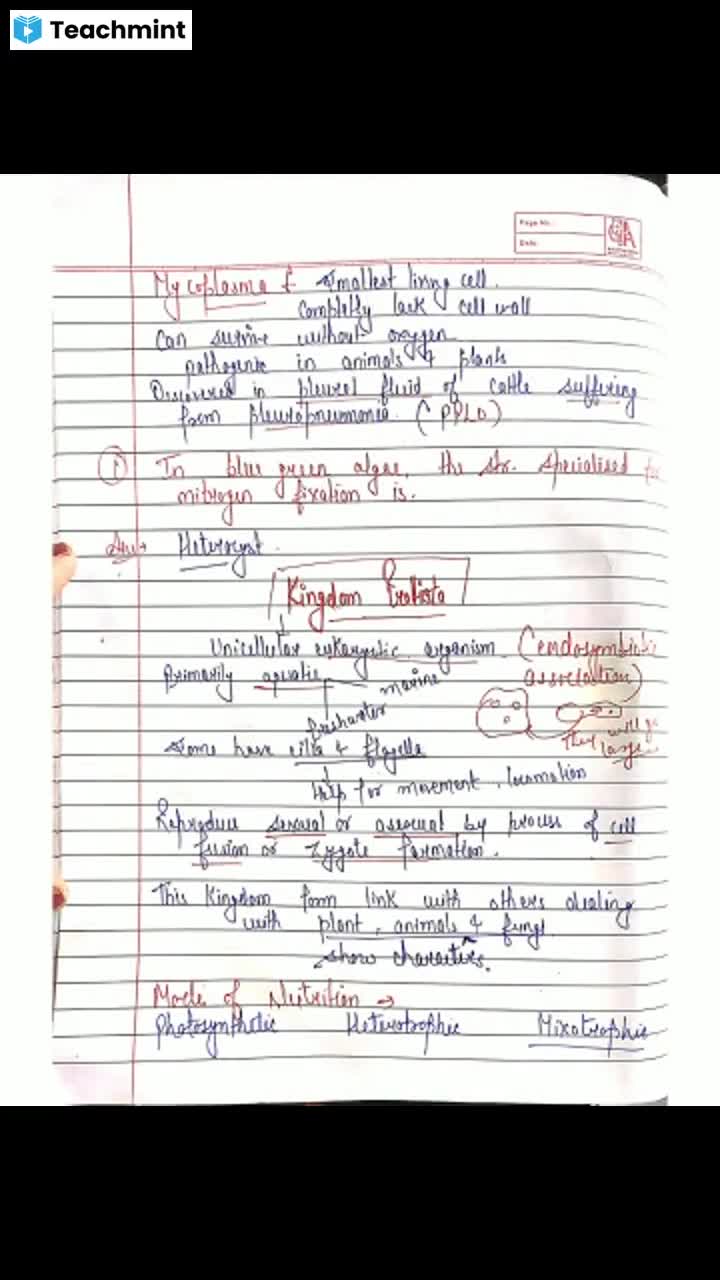 Teachmint
Page No.
Date
Mycoplasma Smallest living cell.
Completly lack cell wall
Can survive without oxygen
pathogenic in animals & plants
Discovered in pleurel fluid of cattle suffering
from pleuropneumonia. (PPLO)
① In blue green algae, the str. specialised for
nitrogen fixation is.
Ans→ Heterocyst.
Kingdom Protista
Unicellular eukaryotic organism (endosymbiotic
Primarily aquatic marine association)
freshwater
Some have cilia & flagella They will
large
Help for movement, locomotion
Reproduce sexual or asexual by process of cell
fusion or zygote formation.
This Kingdom form link with others dealing
with plant, animals & fungi
show characters.
Mode of Nutrition →
Photosynthetic Heterotrophic Mixotrophic